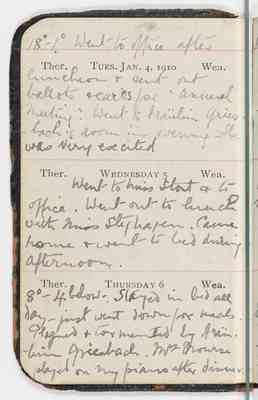 18°-1° Went to office after
Ther. TUES. JAN. 4, 1910 Wea.
luncheon & sent out
ballots & cards for "annual
meeting". Went to Fräulein Gries-
bach's room in evening. She
was very excited
Ther. WEDNESDAY 5 Wea.
Went to Miss Stout & to
office. Went out to lunch
with Miss Came
home & went to bed during
afternoon.
Ther. THURSDAY 6 Wea.
8°-4 below. Stayed in bed all
day - just went down for meals.
Plagued & tormented by Fräu-
lein Griesbach. Mrs Nourse
played on my piano after dinner.